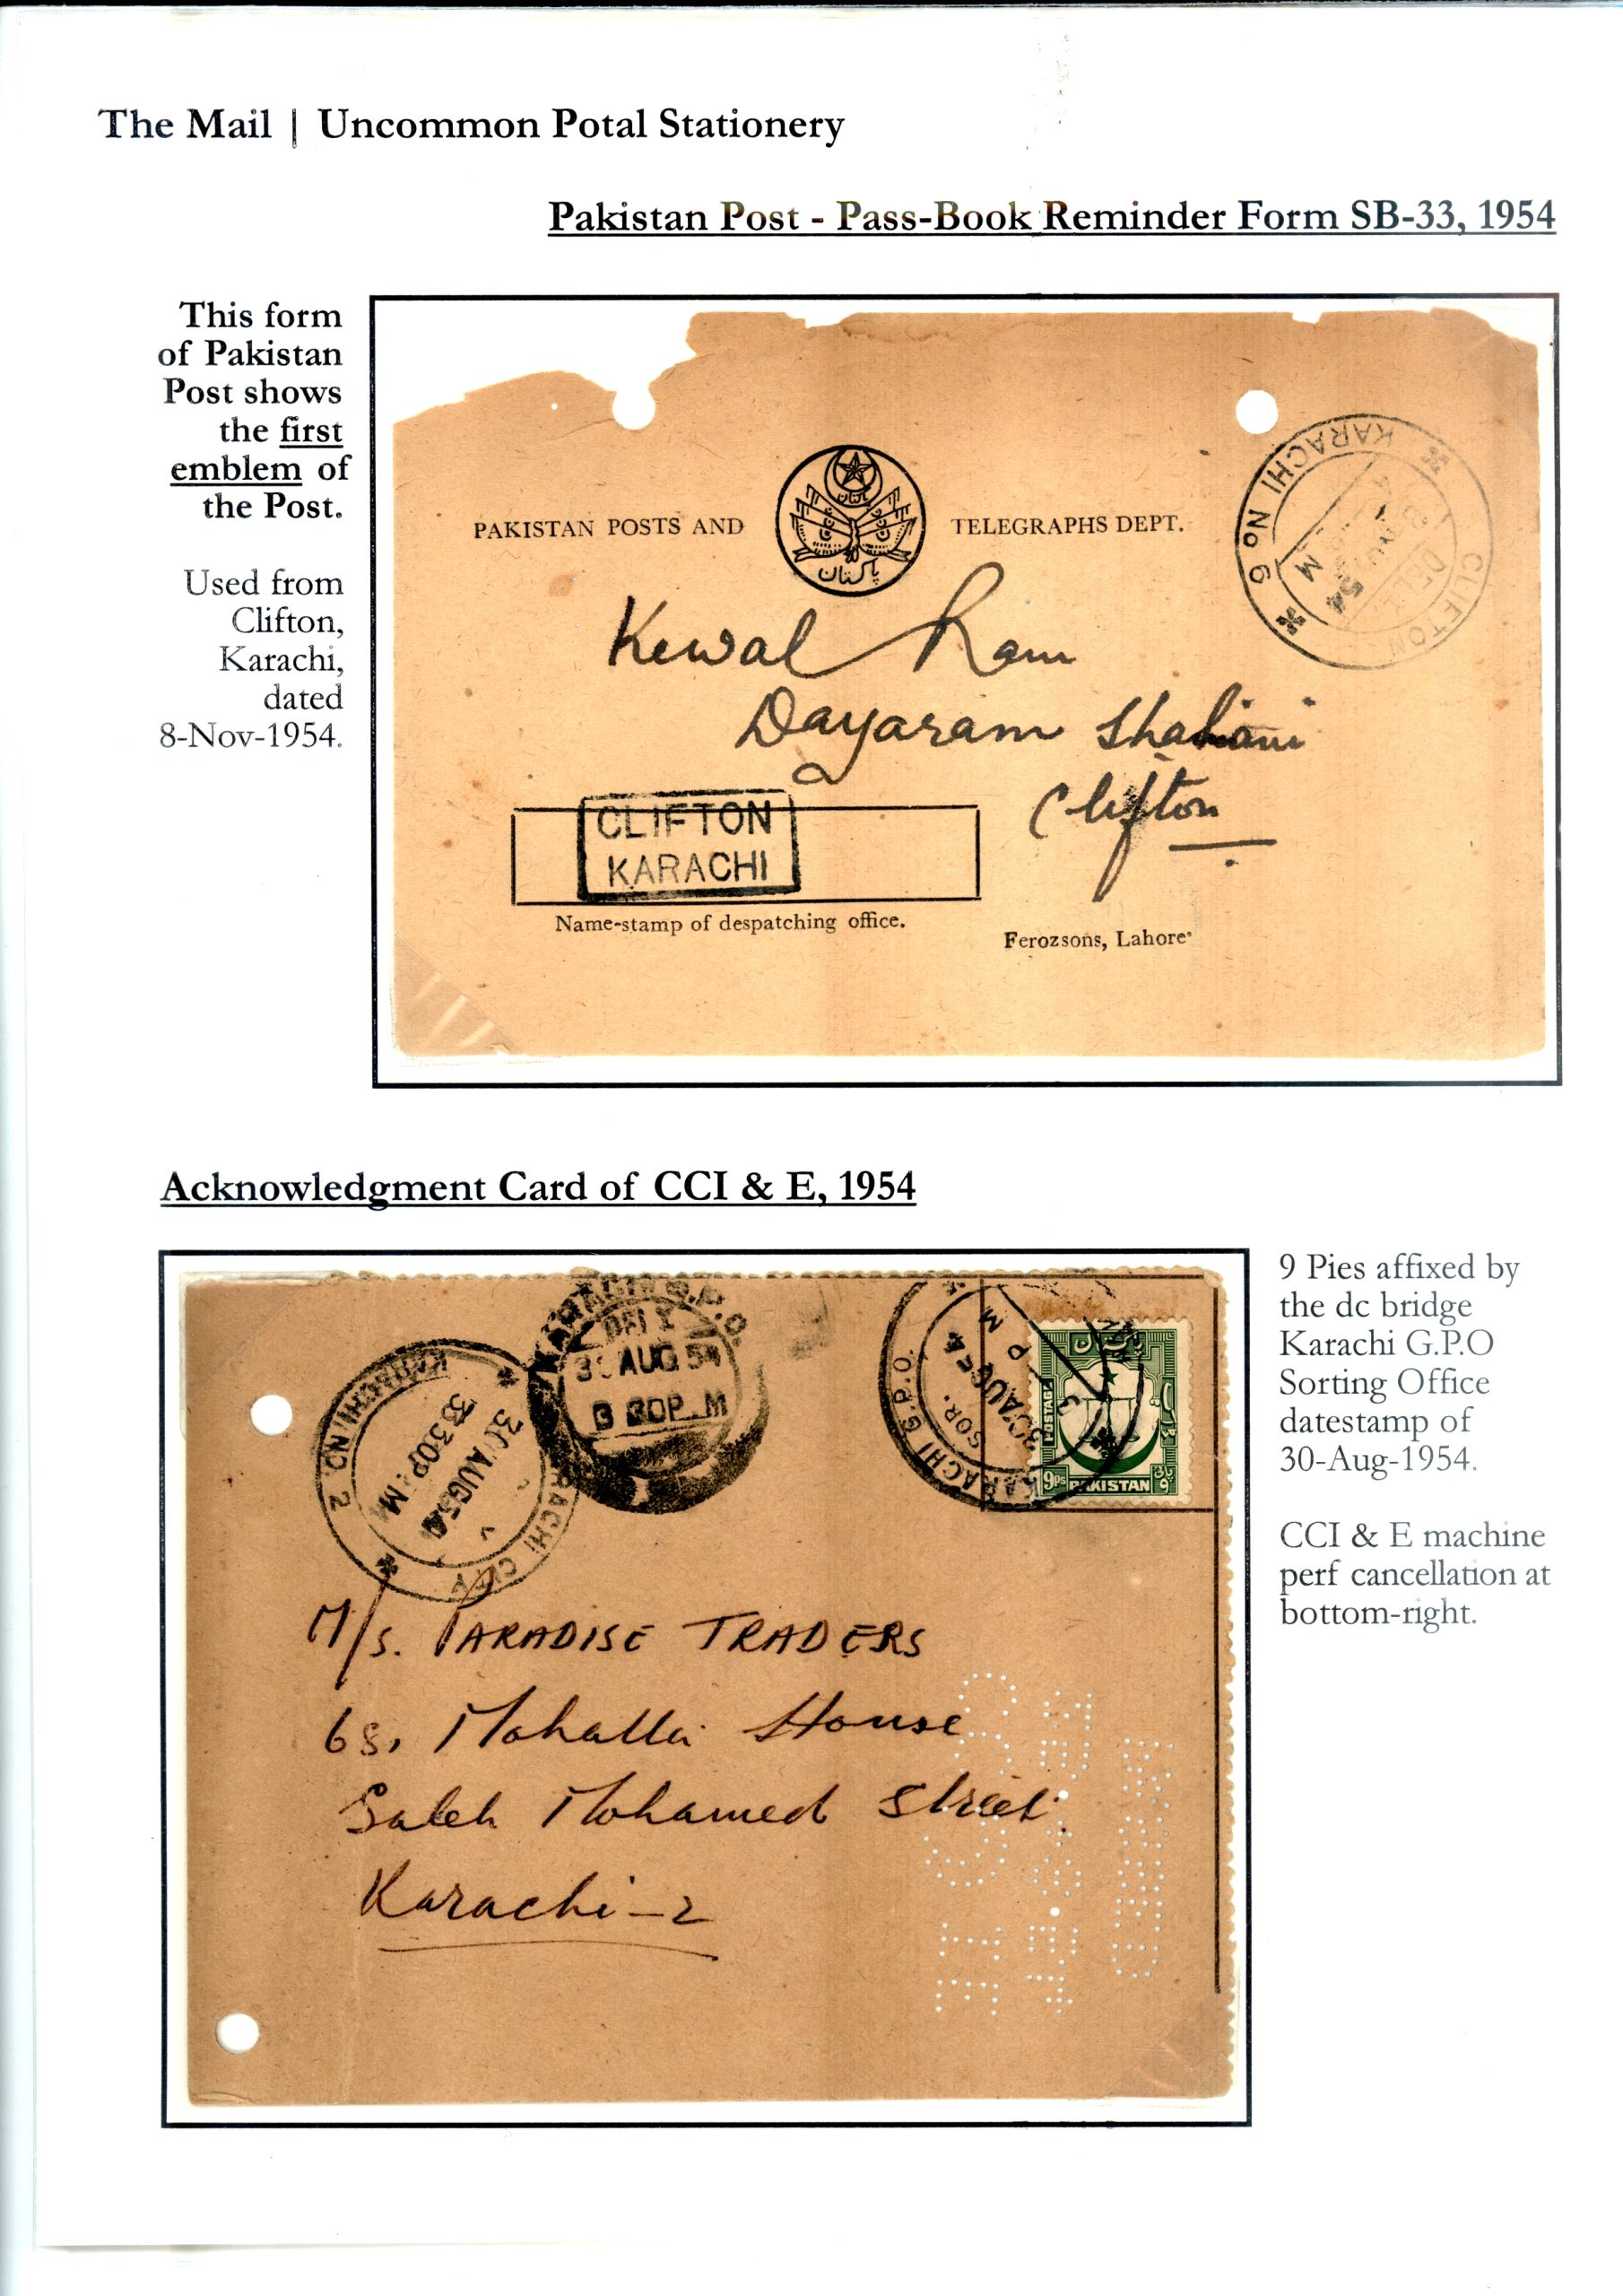 The Mail | Uncommon Potal Stationery
Pakistan Post - Pass-Book Reminder Form SB-33, 1954
This form
of Pakistan
Post shows
the first
emblem of
the Post.
Used from
Clifton,
Karachi,
dated
8-Nov-1954.
PAKISTAN POSTS AND
TELEGRAPHS DEPT.
پاکستان
KARACHI No 6
CLIFTON
DEL
54
M
Kewal Ram
Dayaram Shahani
Clifton
CLIFTON
KARACHI
Name-stamp of despatching office.
Ferozsons, Lahore
Acknowledgment Card of CCI & E, 1954
KARACHI G.P.O
30 AUG 54
3 30P.M
KARACHI NO. 2
KARACHI CITY
30 AUG 54
3 30P.M
KARACHI G.P.O.
SOR.
30 AUG 54
3 P M
پاکستان
POSTAGE
9ps
PAKISTAN
M/s. PARADISE TRADERS
68, Mohatta House
Saleh Mohamed Street.
Karachi-2
9 Pies affixed by
the dc bridge
Karachi G.P.O
Sorting Office
datestamp of
30-Aug-1954.
CCI & E machine
perf cancellation at
bottom-right.